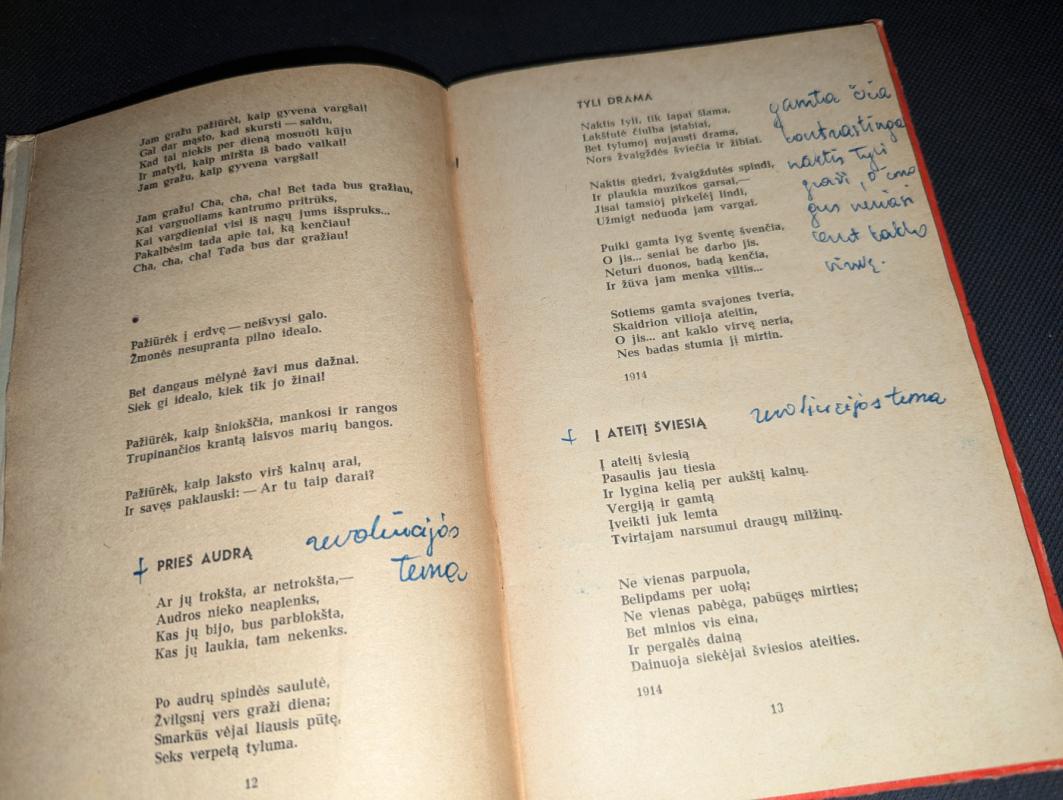 Jam gražu pažiūrėt, kaip gyvena vargšai!
Gal dar mąsto, kad skursti — saldu,
Kad tai niekis per dieną mosuoti kūju
Ir matyti, kaip miršta iš bado vaikai!
Jam gražu, kaip gyvena vargšai!
Jam gražu! Cha, cha, cha! Bet tada bus gražiau,
Kai varguoliams kantrumo pritrūks,
Kai vargdieniai visi iš nagų jums išspruks...
Pakalbėsim tada apie tai, ką kenčiau!
Cha, cha, cha! Tada bus dar gražiau!
Pažiūrėk į erdvę — neišvysi galo.
Žmonės nesupranta pilno idealo.
Bet dangaus mėlynė žavi mus dažnai.
Siek gi idealo, kiek tik jo žinai!
Pažiūrėk, kaip šniokščia, mankosi ir rangos
Trupinančios krantą laisvos marių bangos.
Pažiūrėk, kaip laksto virš kalnų arai,
Ir savęs paklauski: — Ar tu taip darai?
PRIEŠ AUDRĄ
revoliucijos
tema
Ar jų trokšta, ar netrokšta,—
Audros nieko neaplenks,
Kas jų bijo, bus parblokšta,
Kas jų laukia, tam nekenks.
Po audrų spindės saulutė,
Žvilgsnį vers graži diena;
Smarkūs vėjai liausis pūtę,
Seks verpetą tyluma.
12
TYLI DRAMA
Naktis tyli, tik lapai šlama,
Lakštutė čiulba įstabiai,
Bet tylumoj nujausti drama,
Nors žvaigždės šviečia ir žibiai.
Naktis giedri, žvaigždutės spindi,
Ir plaukia muzikos garsai,—
Jisai tamsioj pirkelėj lindi,
Užmigt neduoda jam vargai.
Puiki gamta lyg šventę švenčia,
O jis... seniai be darbo jis.
Neturi duonos, badą kenčia,
Ir žūva jam menka viltis...
Sotiems gamta svajones tveria,
Skaidrion vilioja ateitin,
O jis... ant kaklo virvę neria,
Nes badas stumia jį mirtin.
1914
gamta čia
kontrastinga
naktis tyli
graži, o žmo
gus neriasi
ant kaklo
virvę.
Į ATEITĮ ŠVIESIĄ
revoliucijos tema
Į ateitį šviesią
Pasaulis jau tiesia
Ir lygina kelią per aukštį kalnų.
Vergiją ir gamtą
Įveikti juk lemta
Tvirtajam narsumui draugų milžinų.
Ne vienas parpuola,
Belipdams per uolą;
Ne vienas pabėga, pabūgęs mirties;
Bet minios vis eina,
Ir pergalės dainą
Dainuoja siekėjai šviesios ateities.
1914
13